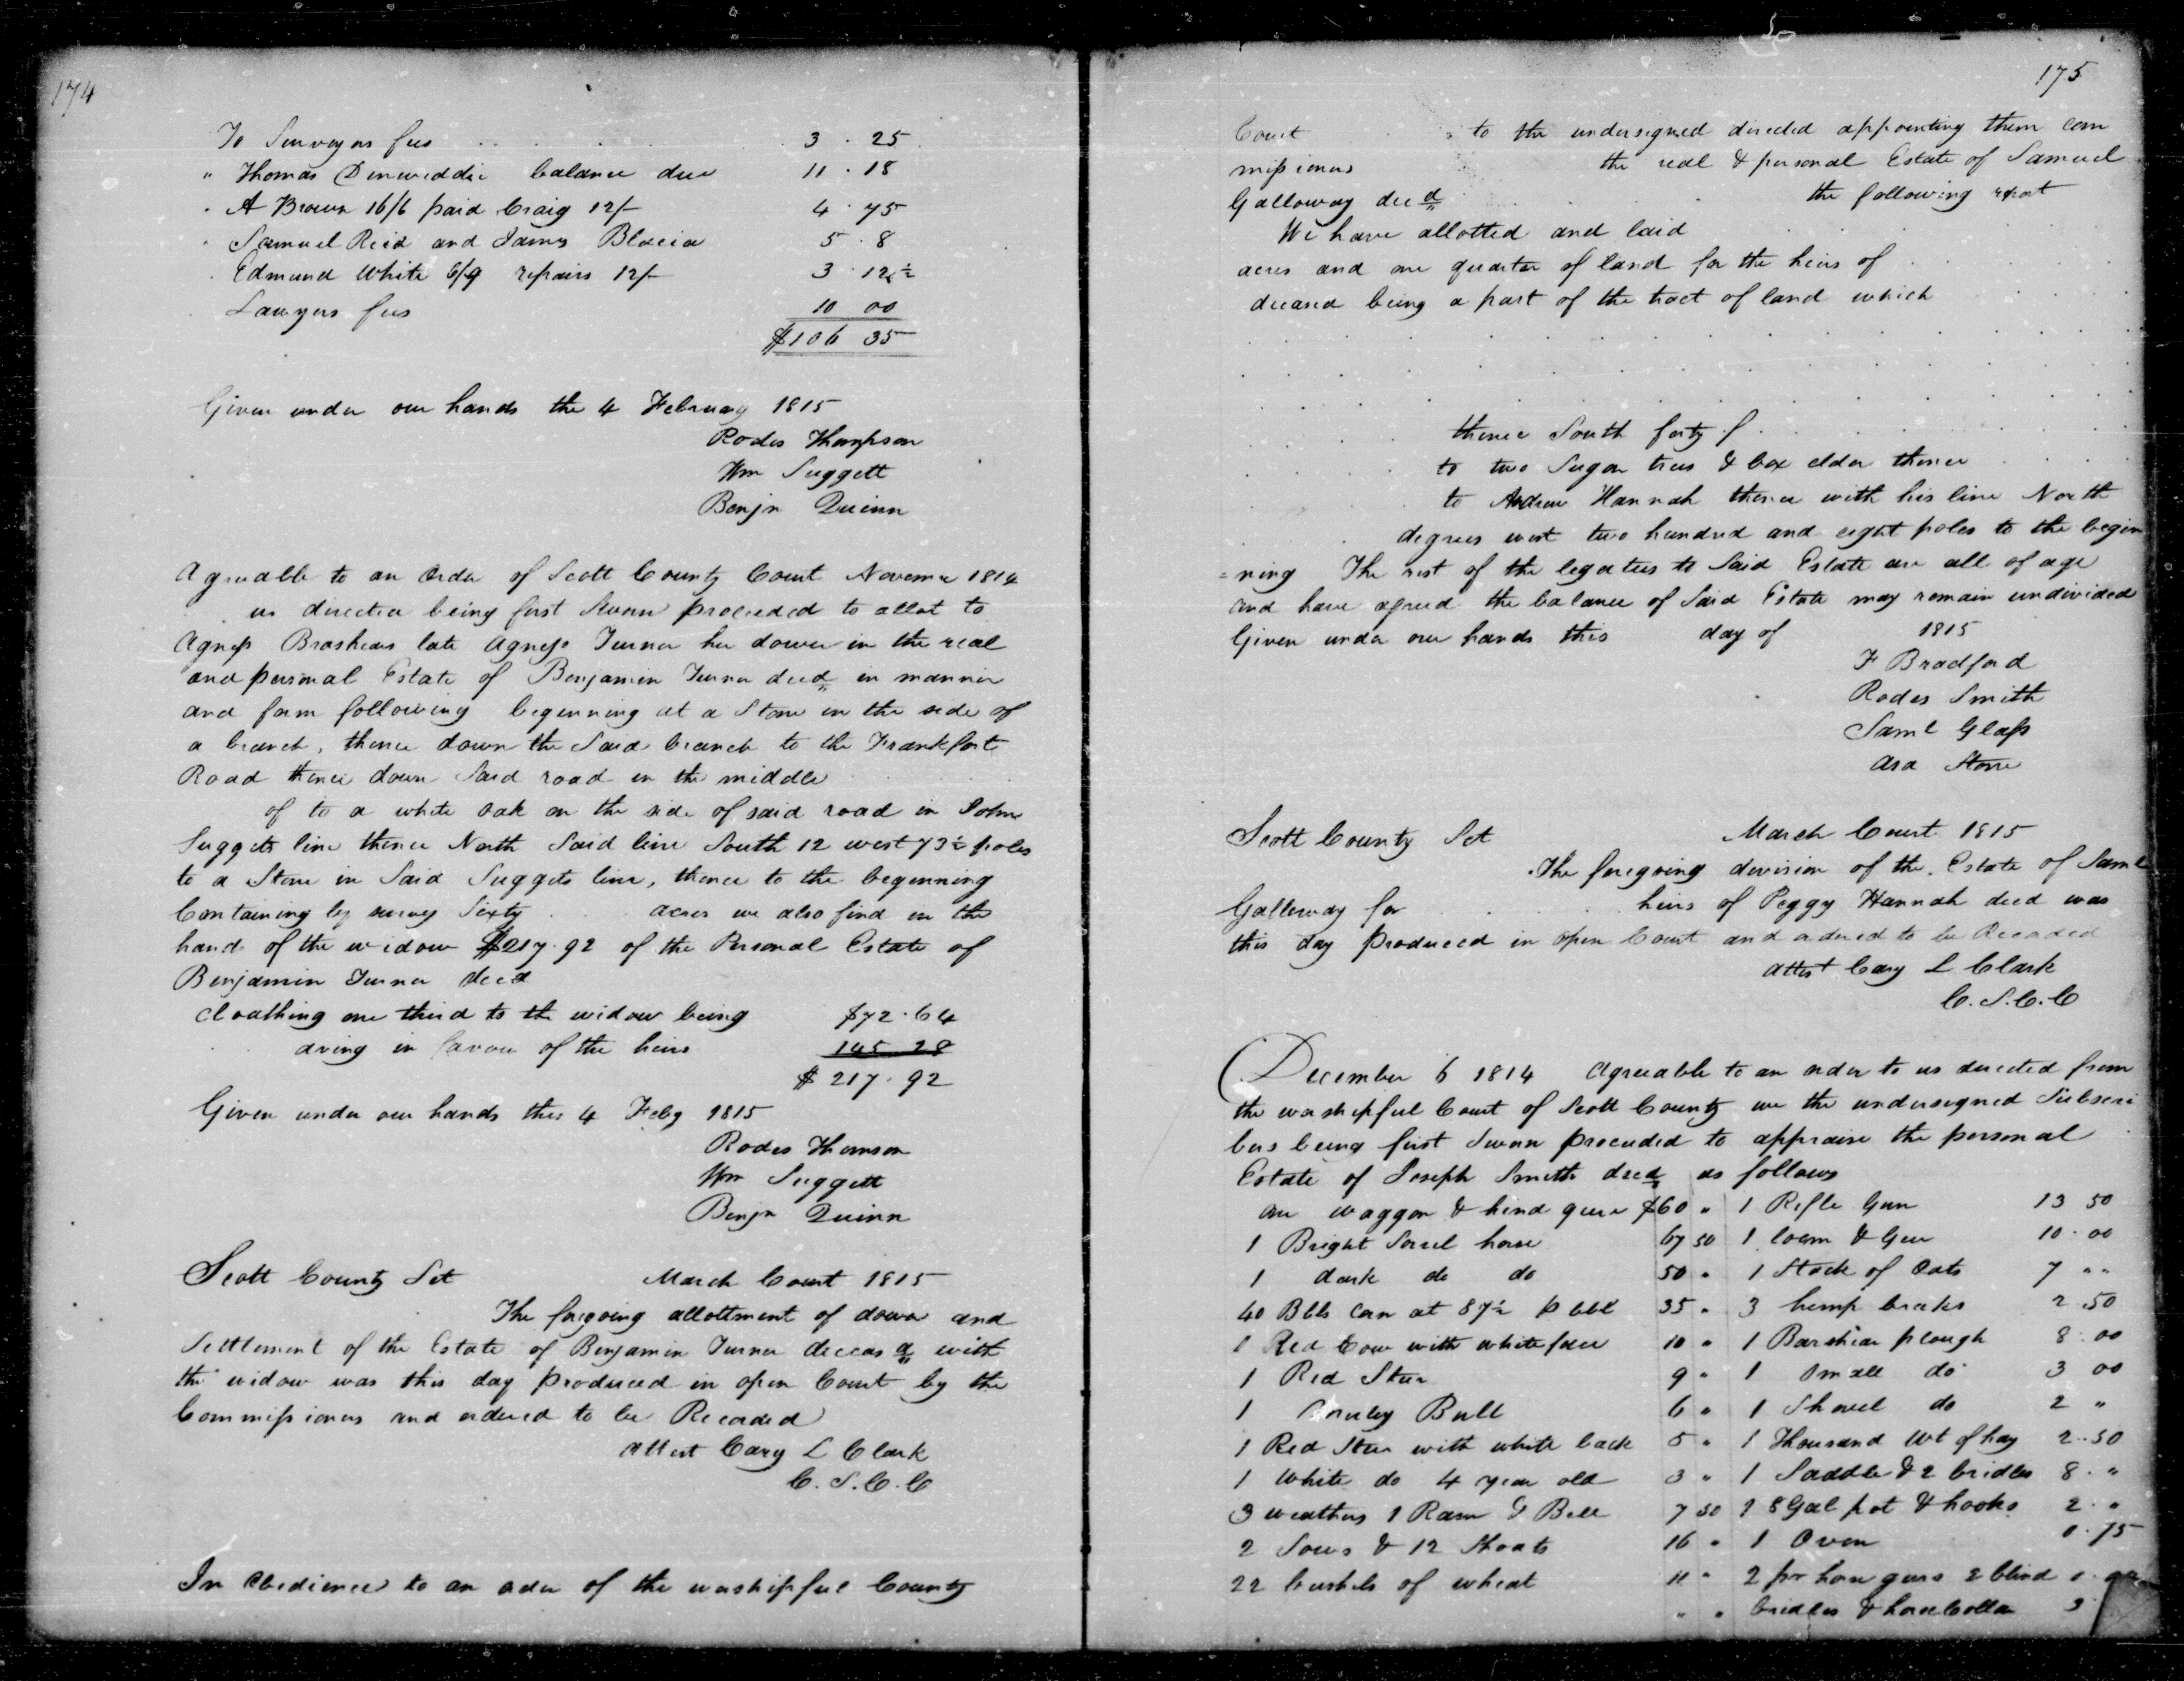 174
To Surveyors fees 3.25
" Thomas Dinwiddie balance due 11.18
" A Brown 16/6 paid Craig 12/- 4.75
" Samuel Reid and James 5.8
Edmund White 6/9 repairs 12/- 3.12½
Lawyers fees 10 00
$106 35
Given under our hands the 4 February 1815
Rodes Thompson
Wm Suggett
Benjn Quinn
Agreeable to an Order of Scott County Court 1814
us directed being first Sworn proceeded to allot to
Agness Brashears late Agness Turner her dower in the real
and personal Estate of Benjamin Turner decd in manner
and form following beginning at a Stone in the side of
a branch, thence down the Said branch to the Frankfort
Road thence down Said road in the middle
of to a white oak on the side of said road in John
Suggets line thence North Said line South 12 west 73½ poles
to a Stone in Said Suggets line, thence to the beginning
Containing by survey Sixty acres we also find in the
hands of the widow $217.92 of the Personal Estate of
Benjamin Turner decd
cloathing one third to the widow being $72.64
aving in favour of the heirs 145 28
$217.92
Given under our hands this 4 Feby 1815
Rodes Thomson
Wm Suggett
Benjn Quinn
Scott County Sct March Court 1815
The foregoing allottment of dower and
Settlement of the Estate of Benjamin Turner deceasd with
the widow was this day produced in open Court by the
Commissioners and ordered to be Recorded
attest Cary L Clark
C.S.C.C
In Obedience to an order of the worshipful County
175
Court to the undersigned directed appointing them com
missioners the real & personal Estate of Samuel
Galloway decd the following report
We have allotted and laid
acres and one quarter of land for the heirs of
deceased being a part of the tract of land which
thence South forty f
to two Sugar trees & box elder thence
to Andrew Hannah thence with his line North
degrees west two hundred and eight poles to the begin
=ning The rest of the legatees to Said Estate are all of age
and have agreed the balance of Said Estate may remain undivided
Given under our hands this day of 1815
F Bradford
Rodes Smith
Saml Glass
Asa Stone
Scott County Sct March Court 1815
The foregoing division of the Estate of Saml
Galloway for heirs of Peggy Hannah decd was
this day produced in open Court and ordered to be Recorded
attest Cary L Clark
C.S.C.C
December 6 1814 Agreeable to an order to us directed from
the worshipful Court of Scott County we the undersigned Subscri
bers being first Sworn proceeded to appraise the personal
Estate of Joseph Smith decd as follows
one waggon & hind geer $60 " 1 Rifle Gun 13 50
1 Bright Sorrel horse 67 50 1 loom & Geer 10.00
1 dark do do 50 " 1 Stack of Oats 7 " "
40 Bbls Corn at 87½ p bbl 35 " 3 hemp brakes 2.50
1 Red Cow with white face 10 " 1 Barshear plough 8.00
1 Red Steer 9 " 1 Small do 3 00
1 Bull 6 " 1 Shovel do 2 "
1 Red Steer with white back 5 " 1 Thousand Wt of hay 2.50
1 White do 4 year old 3 " 1 Saddle & 2 bridles 8 "
3 weathers 1 Ram & Bell 7 50 1 8 Gal pot & hooks 2 "
2 Sows & 12 Shoats 16 " 1 Oven 0.75
22 bushels of wheat 11 " 2 pr horse gears 2 blind
" " bridles & horse Collar 3